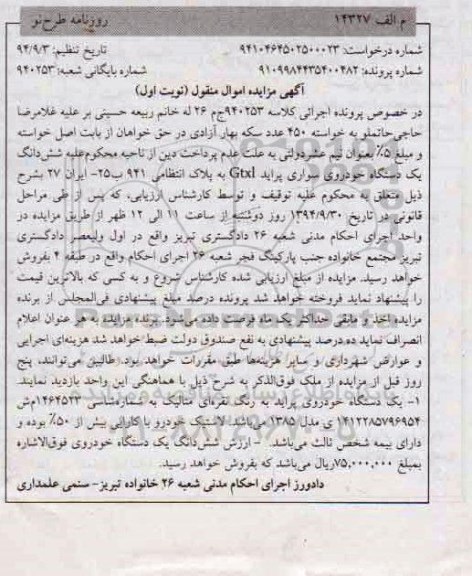 م.الف ۱۴۳۲۷
روزنامه طرح‌نو
شماره درخواست: ۹۴۱۰۴۶۴۵۰۲۵۰۰۰۲۳
تاریخ تنظیم: ۹۴/۹/۳
شماره پرونده: ۹۱۰۹۹۸۴۴۳۵۴۰۰۴۸۲
شماره بایگانی شعبه: ۹۴۰۲۵۳
آگهی مزایده اموال منقول (نوبت اول)
در خصوص پرونده اجرائی کلاسه ۹۴۰۲۵۳ج‌م ۲۶ له خانم ربیعه حسینی بر علیه غلامرضا
حاجی‌حاتملو به خواسته ۴۵۰ عدد سکه بهار آزادی در حق خواهان از بابت اصل خواسته
و مبلغ ۵٪ بعنوان نیم عشردولتی به علت عدم پرداخت دین از ناحیه محکوم‌علیه شش‌دانگ
یک دستگاه خودروی سواری پراید Gtxl به پلاک انتظامی ۹۴۱ ب۲۵- ایران ۲۷ بشرح
ذیل متعلق به محکوم علیه توقیف و توسط کارشناس ارزیابی، که پس از طی مراحل
قانونی در تاریخ ۱۳۹۴/۹/۳۰ روز دوشنبه از ساعت ۱۱ الی ۱۲ ظهر از طریق مزایده در
واحد اجرای احکام مدنی شعبه ۲۶ دادگستری تبریز واقع در اول ولیعصر دادگستری
تبریز مجتمع خانواده جنب پارکینگ فجر شعبه ۲۶ اجرای احکام واقع در طبقه ۲ بفروش
خواهد رسید. مزایده از مبلغ ارزیابی شده کارشناس شروع و به کسی که بالاترین قیمت
را پیشنهاد نماید فروخته خواهد شد پرونده درصد مبلغ پیشنهادی فی‌المجلس از برنده
مزایده اخذ و مابقی حداکثر یک ماه فرصت داده می‌شود برنده مزایده به هر عنوان اعلام
انصراف نماید ده‌درصد پیشنهادی به نفع صندوق دولت ضبط خواهد شد هزینه‌ای اجرایی
و عوارض شهرداری و سایر هزینه‌ها طبق مقررات خواهد بود. طالبین می‌توانند، پنج
روز قبل از مزایده از ملک فوق‌الذکر به شرح ذیل با هماهنگی این واحد بازدید نمایند.
۱- یک دستگاه خودروی پراید به رنگ نقره‌ای متالیک به شماره‌شاسی
ی مدل ۱۳۸۵ می‌باشد. لاستیک خودرو با کارایی بیش از ۵۰٪ بوده و
دارای بیمه شخص ثالث می‌باشد ۲- ارزش شش‌دانگ یک دستگاه خودروی فوق‌الاشاره
بمبلغ ۷۵,۰۰۰,۰۰۰ریال می‌باشد که بفروش خواهد رسید.
دادورز اجرای احکام مدنی شعبه ۲۶ خانواده تبریز- سنمی علمداری